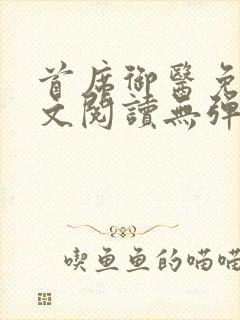 首席御醫免
文閱讀無彈
喫魚魚的喵喵